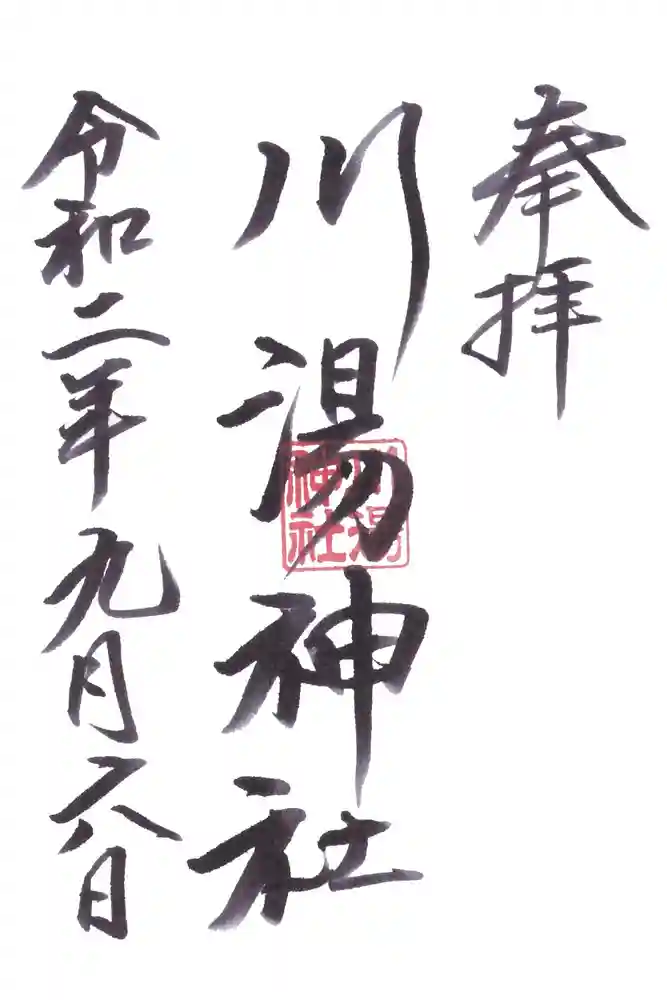 奉拝
川湯神社
川湯
神社
令和二年九月六日